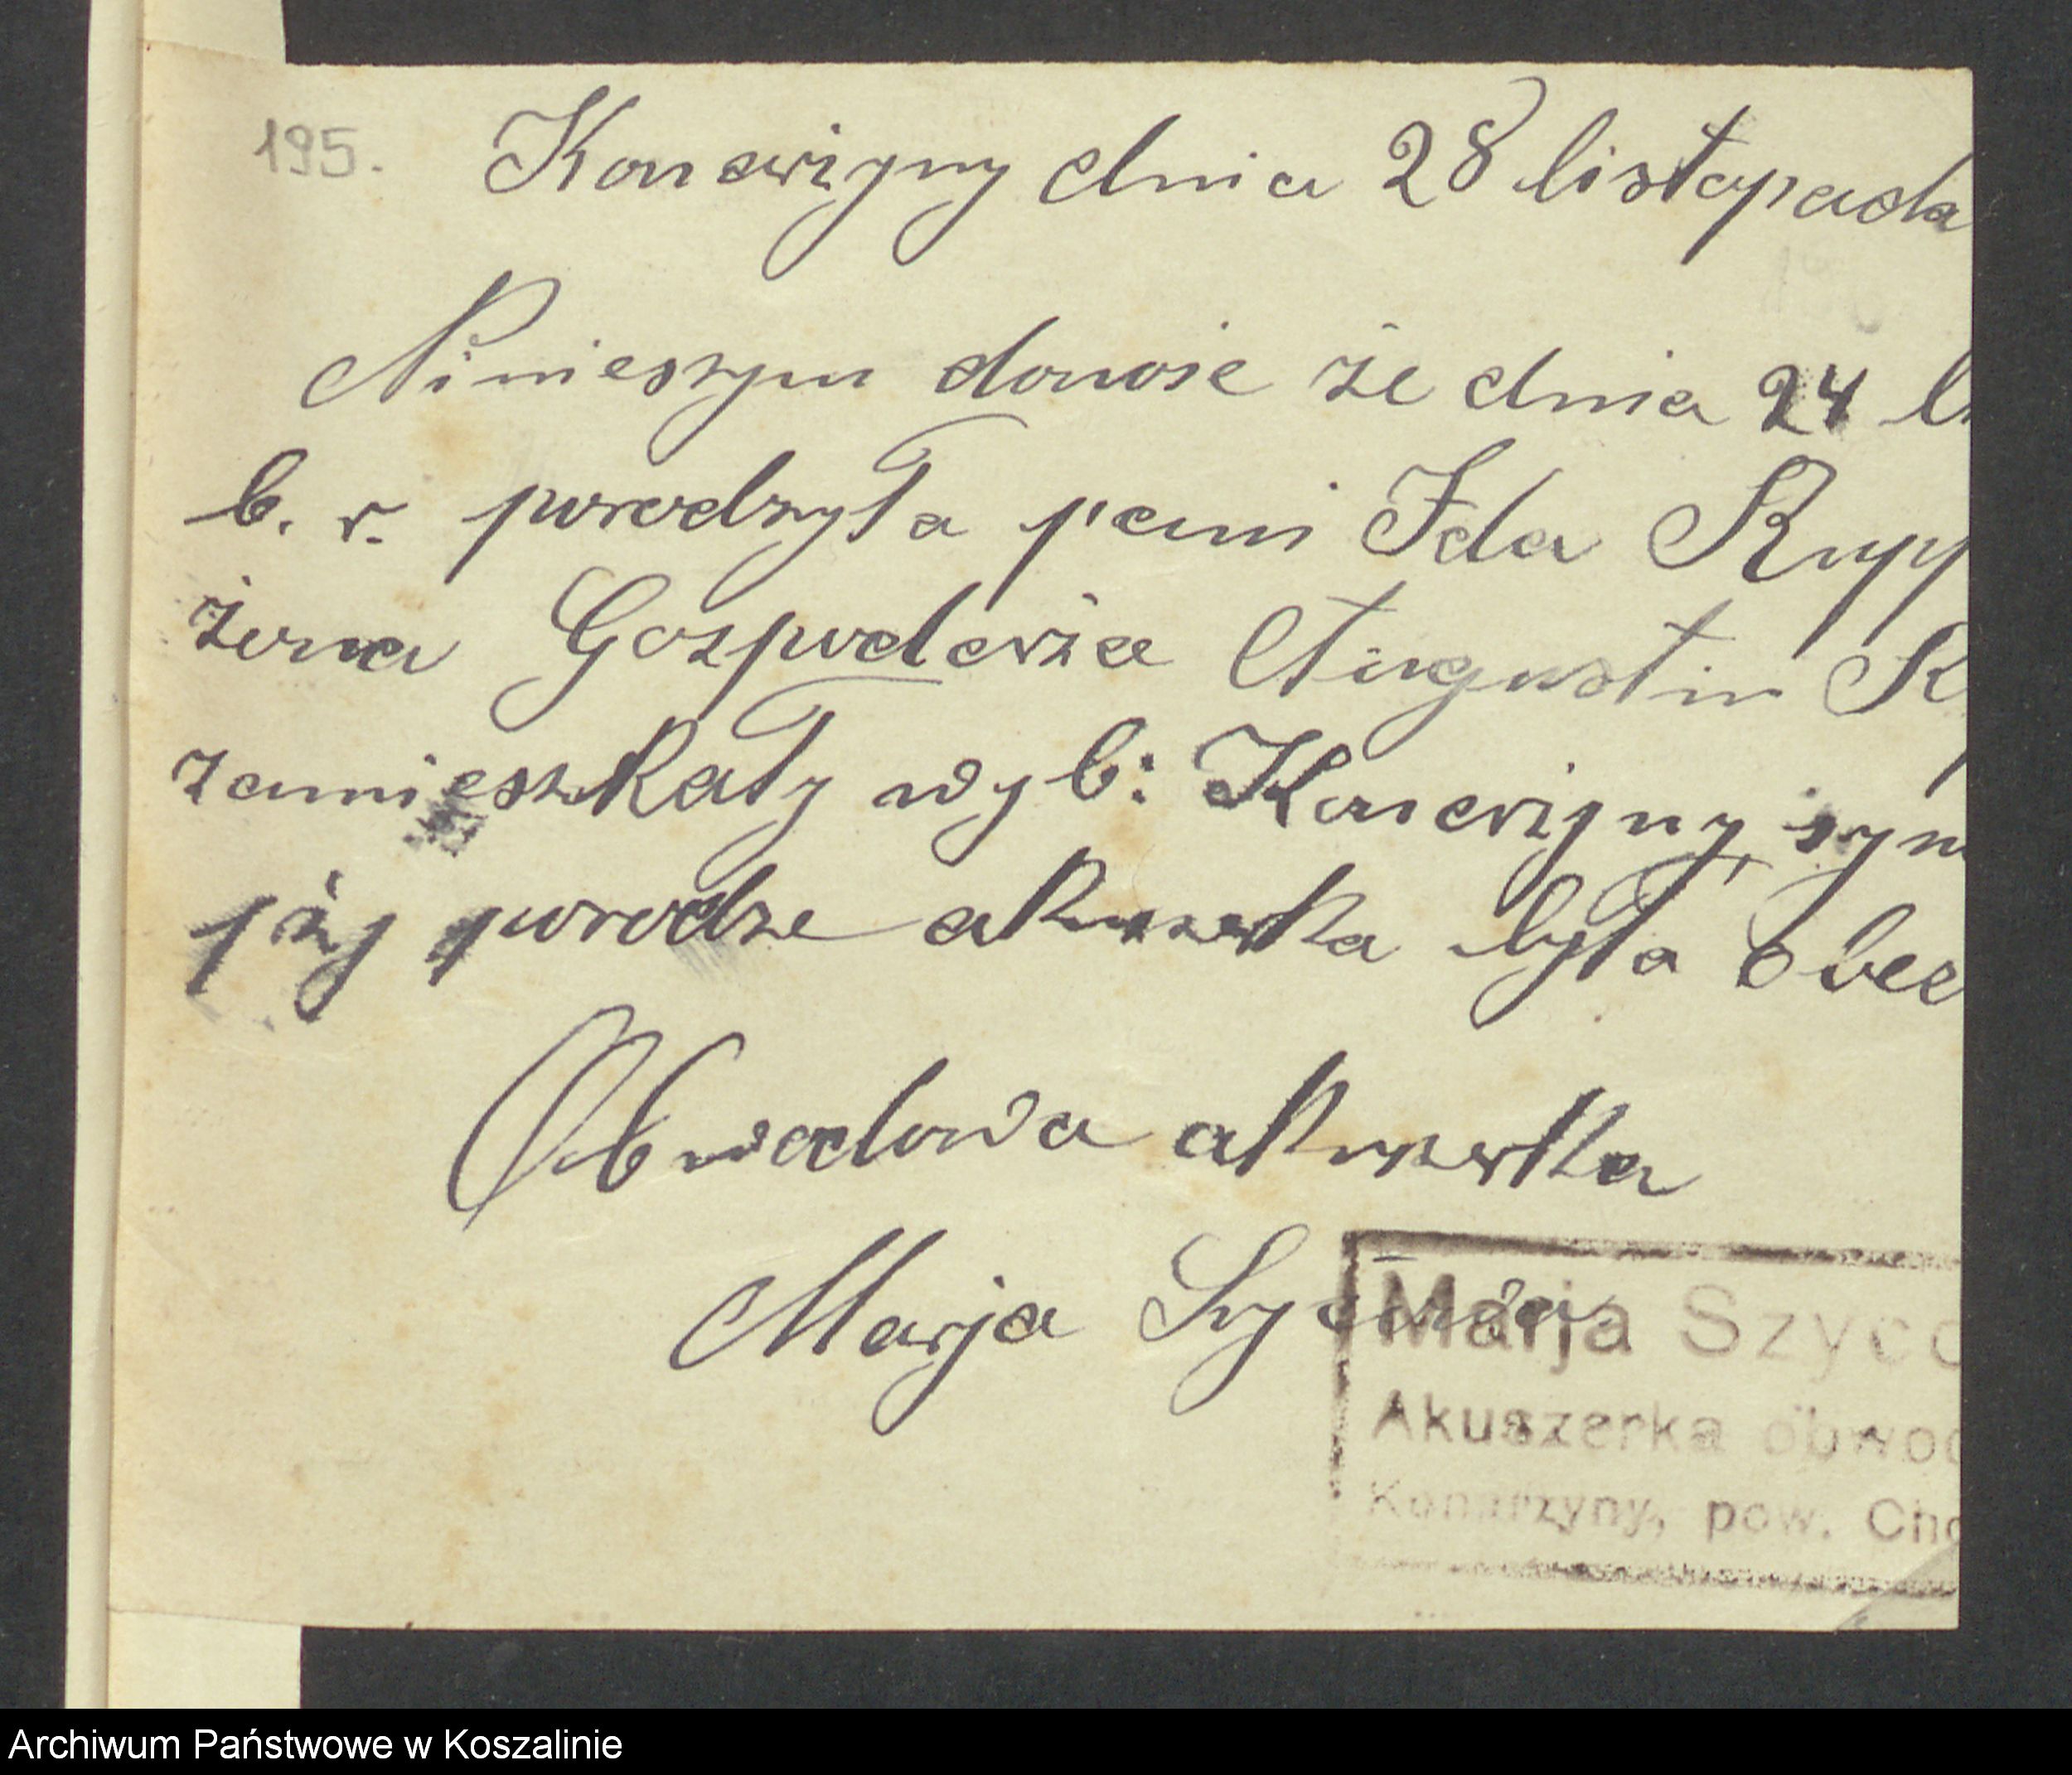 195.
Konarzyny dnia 28 listopada
Ninieszym donosie że dnia 24 li
b. r. porodzyła pani Ida Rupp
żona Gospodarża August in R
zamieszkały wyb: Konarzyny, syn
pży porodze akuszerka była obec
Obwodowa akuszerka
Marja Szycowa
Marja Szyco
Akuszerka obwod
Konarzyny, pow. Cho
Archiwum Państwowe w Koszalinie